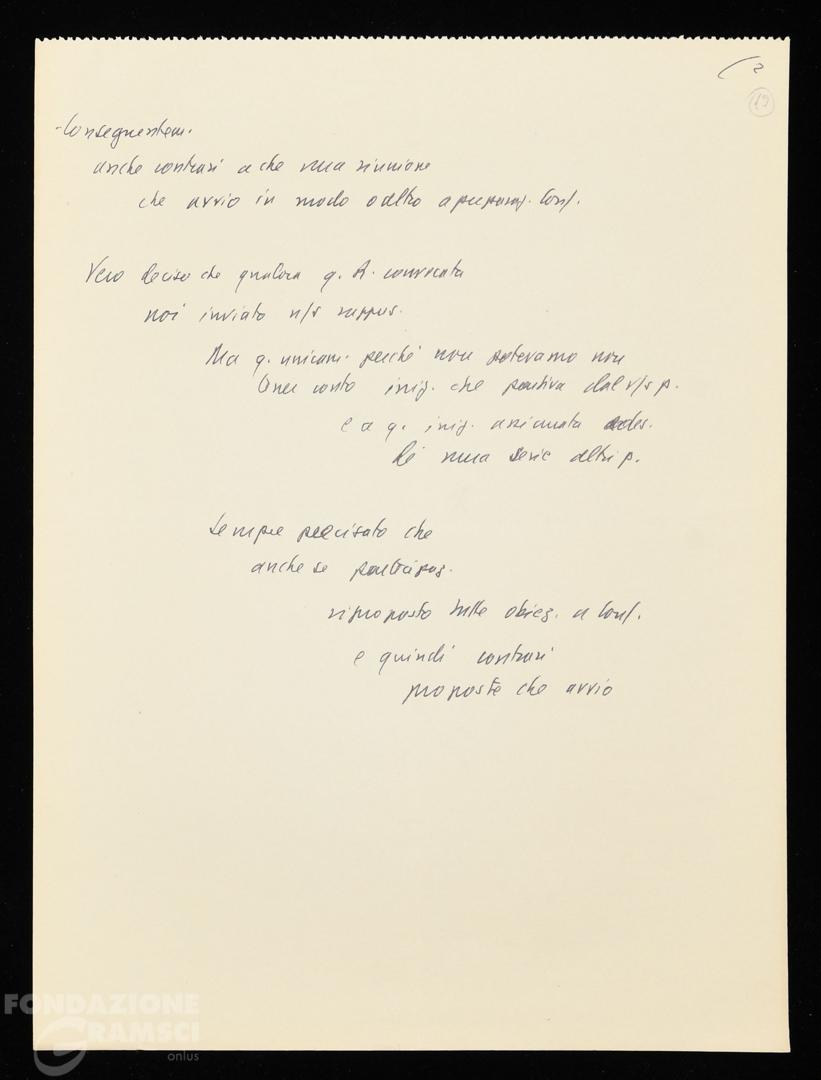 (2
19
- Conseguentem.
anche contrari a che una riunione
che avvio in modo o altro a preparaz. Conf.
Vero deciso che qualora q. R. convocata
noi inviato n/s rappres.
Ma q. unicam. perché non potevamo non
tener conto iniz. che partiva dal v/s p.
e a q. iniz. assicurata ades.
di una serie altri p.
Sempre precisato che
anche se partecipaz.
riproposto tutte obiez. a Conf.
e quindi contrari
proposte che avvio
FONDAZIONE
GRAMSCI
onlus